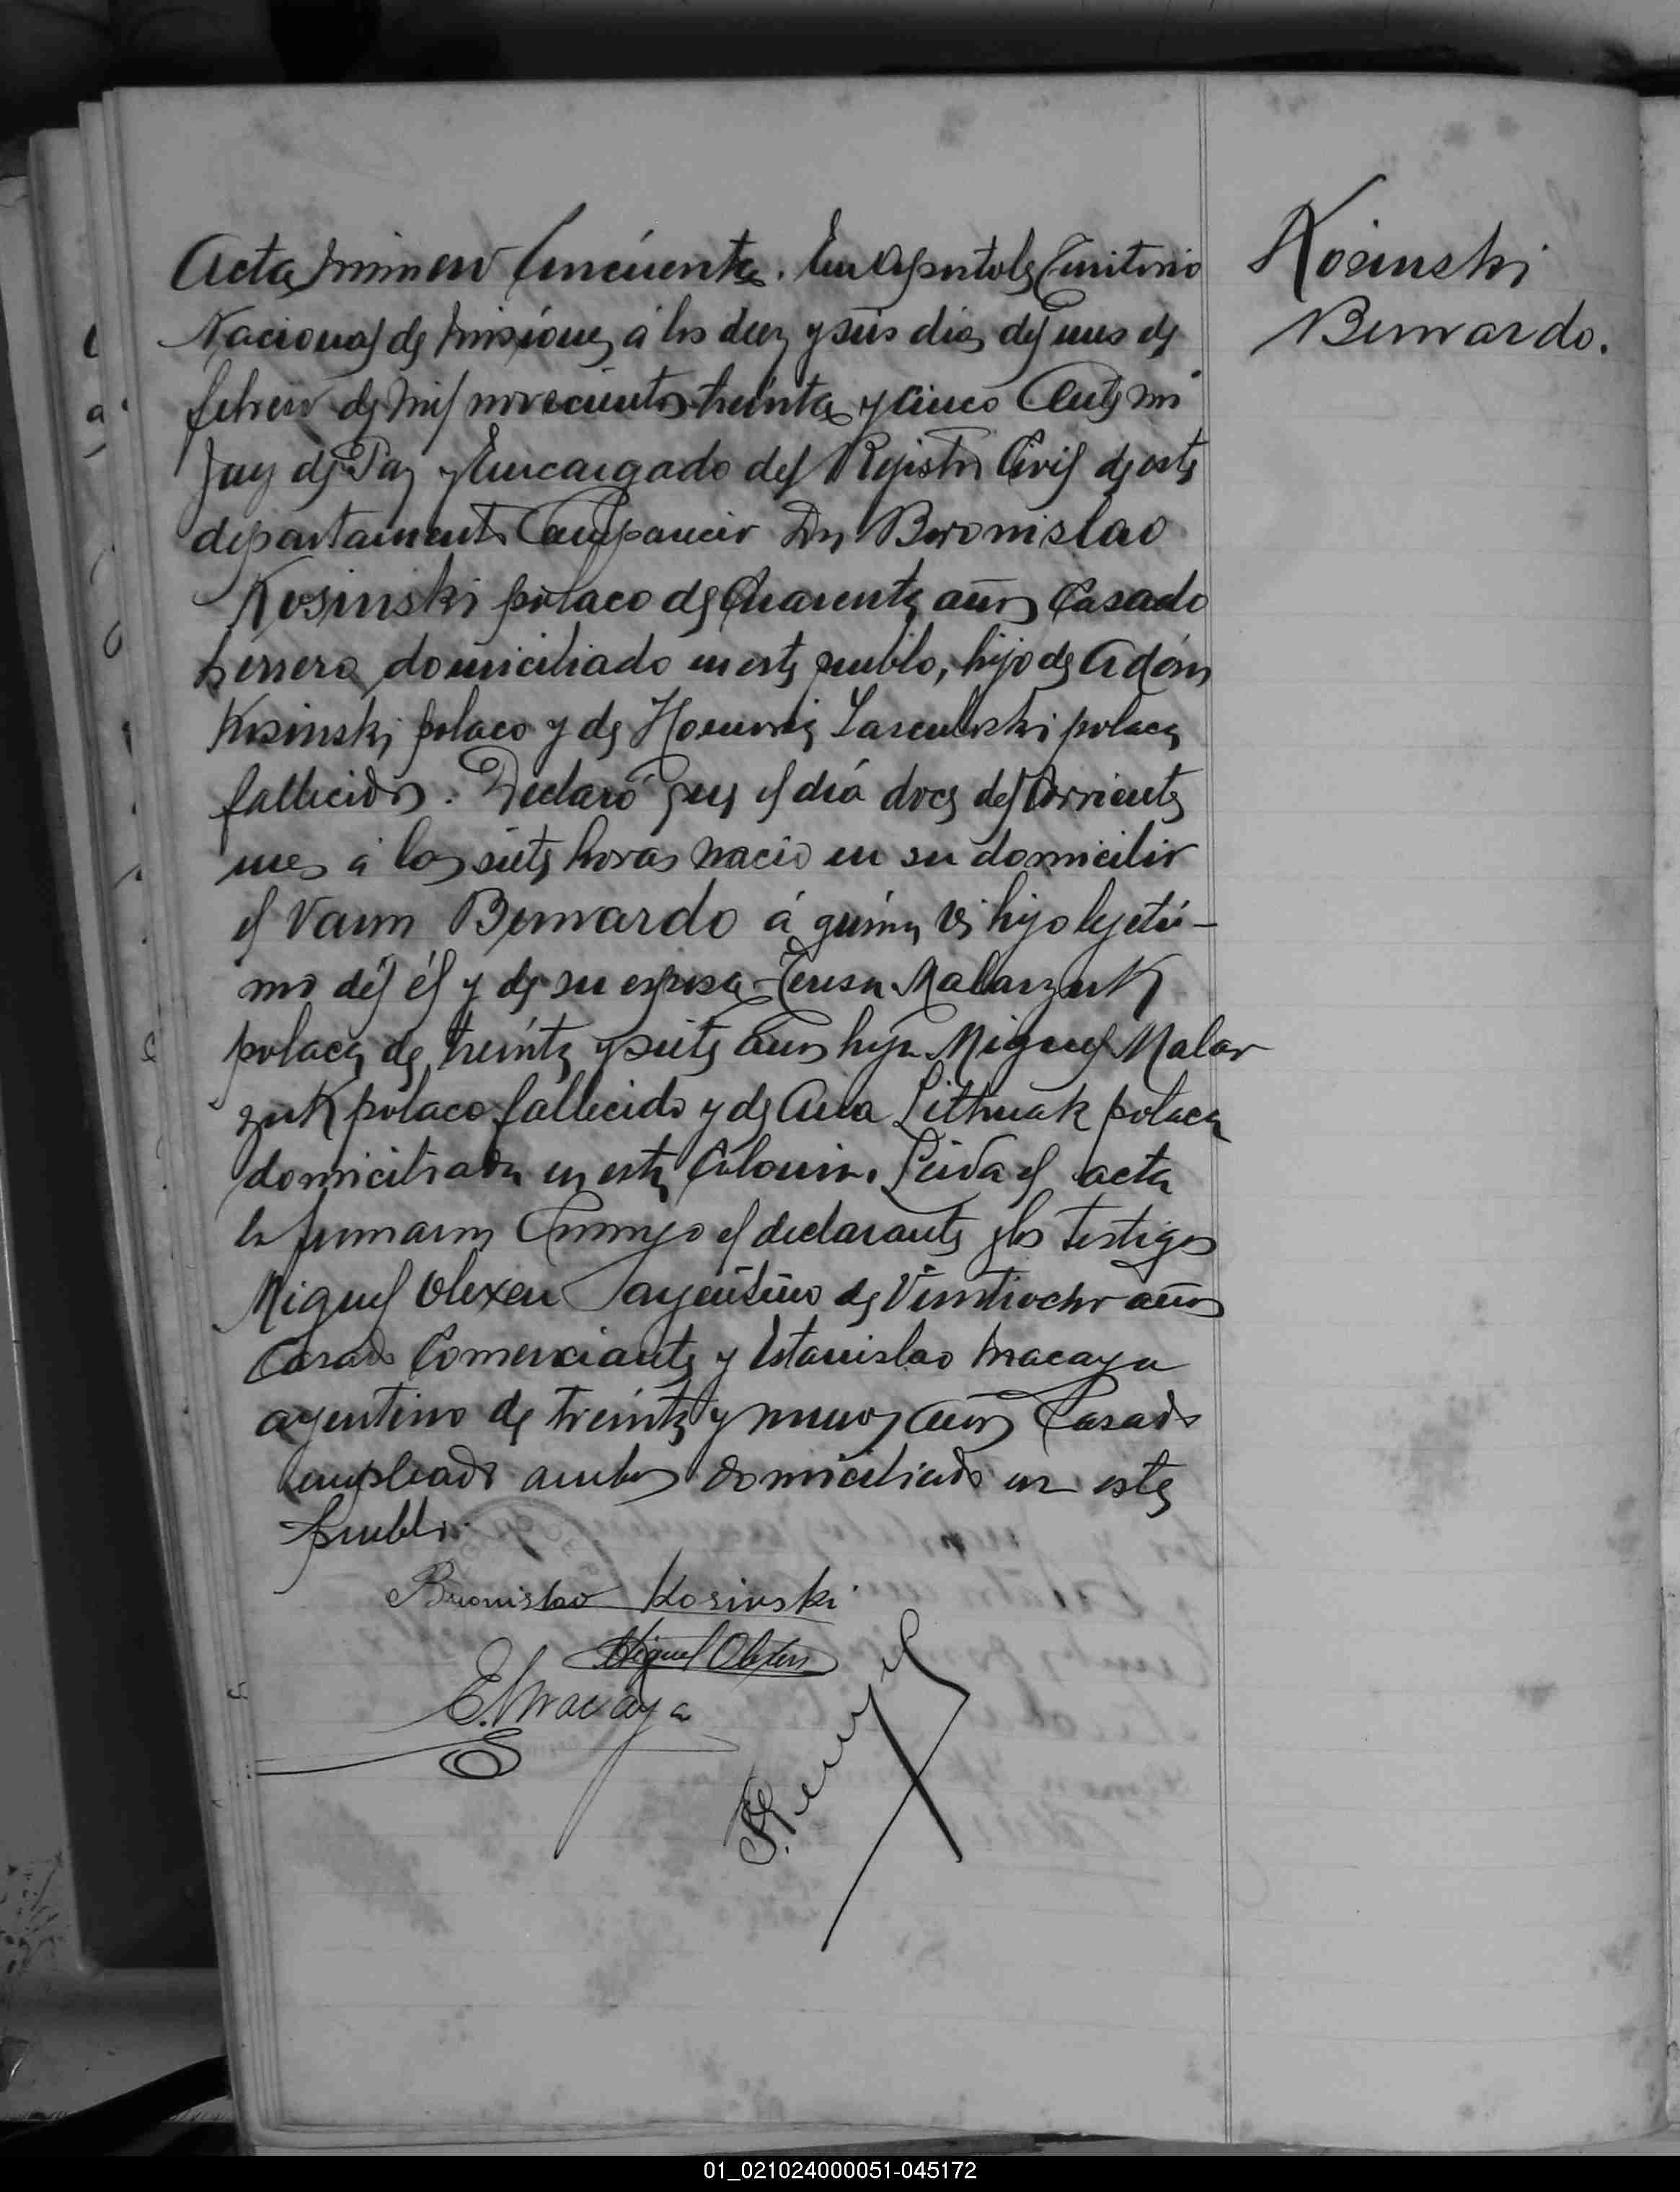 Acta número Cincuenta. En Apóstoles Territorio
Nacional de Misiones, á los diez y seis dias del mes de
febrero de mil novecientos treinta y cinco Ante mi
Juez de Paz y Encargado del Rejistro Civil de este
departamento Compareció Dn Bronislao
Kosinski polaco de Cuarenta años Casado
herrero domiciliado en este pueblo, hijo de Adám
Kosinski polaco y de polaca
fallecidos. Declaró que el día doce del Corriente
mes á las siete horas nació en su domicilio
el Varon Bernardo á quien es hijo lejíti-
mo dél él y de su esposa Teresa Malarzuk
polaca de treinta y siete años hija Miguel Malar
zuk polaco fallecido y de Ana Lithuak polaca
domiciliada en esta Colonia. Leida el acta
la firmaron Conmigo el declarante y los testigos
Miguel Olexen argentino de Veintiocho años
Casado Comerciante y Estanislao Macaya
argentino de treinta y nueve años Casado
empleado ambos domiciliado en este
pueblo.
Bronislao Kosinski
Miguel Olexen
E. Macaya
Kosinski
Bernardo.
01_021024000051-045172